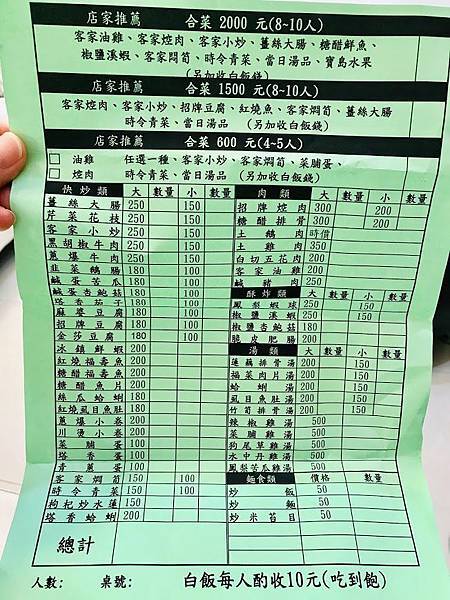 店家推薦 合菜 2000 元(8~10人)
客家油雞、客家焢肉、客家小炒、薑絲大腸、糖醋鮮魚、
椒鹽溪蝦、客家悶筍、時令青菜、當日湯品、寶島水果
(另加收白飯錢)
店家推薦 合菜 1500 元(8~10人)
客家焢肉、客家小炒、招牌豆腐、紅燒魚、客家燜筍、薑絲大腸
時令青菜、當日湯品 (另加收白飯錢)
店家推薦 合菜 600 元(4~5人)
油雞 任選一種、客家小炒、客家燜筍、菜脯蛋、
焢肉 時令青菜、當日湯品 (另加收白飯錢)
快炒類 大 數量 小 數量
薑絲大腸 250 150
芹菜花枝 250 150
客家小炒 250 150
黑胡椒牛肉 250 150
蔥爆牛肉 250 150
韭菜鵝腸 180 100
鹹蛋苦瓜 180 100
鹹蛋杏鮑菇 180 100
塔香茄子 180 100
麻婆豆腐 180 100
招牌豆腐 180 100
金莎豆腐 180 100
冰鎮鮮蝦 200
紅燒福壽魚 200
糖醋福壽魚 200
糖醋魚片 200
絲瓜蛤蜊 200
紅燒虱目魚肚 180
蔥爆小卷 200
川燙小卷 200
菜脯蛋 100
塔香蛋 100
青蔥蛋 100
客家燜筍 150 100
時令青菜 150 100
枸杞炒水蓮 150
塔香蛤蜊 200
總計
肉類 大 數量 小 數量
招牌焢肉 300 200
糖醋排骨 300 200
土鵝肉 時價
土雞肉 350
白切五花肉 200
客家油雞 200
鹹豬肉 250
酥炸類 大 數量 小 數量
鳳梨蝦球 250 150
椒鹽溪蝦 250 150
椒鹽杏鮑菇 180
脆皮肥腸 200
湯類 大 數量 小 數量
蓮藕排骨湯 200 150
福菜肉片湯 200 150
蛤蜊湯 200 150
虱目魚肚湯 200 150
竹筍排骨湯 200 150
辣椒雞湯 500
菜脯雞湯 500
狗尾草雞湯 500
水中丹雞湯 500
鳳梨苦瓜雞湯 500
麵食類 價格 數量
炒飯 50
炒麵 50
炒米苔目 50
人數: 桌號: 白飯每人酌收10元(吃到飽)